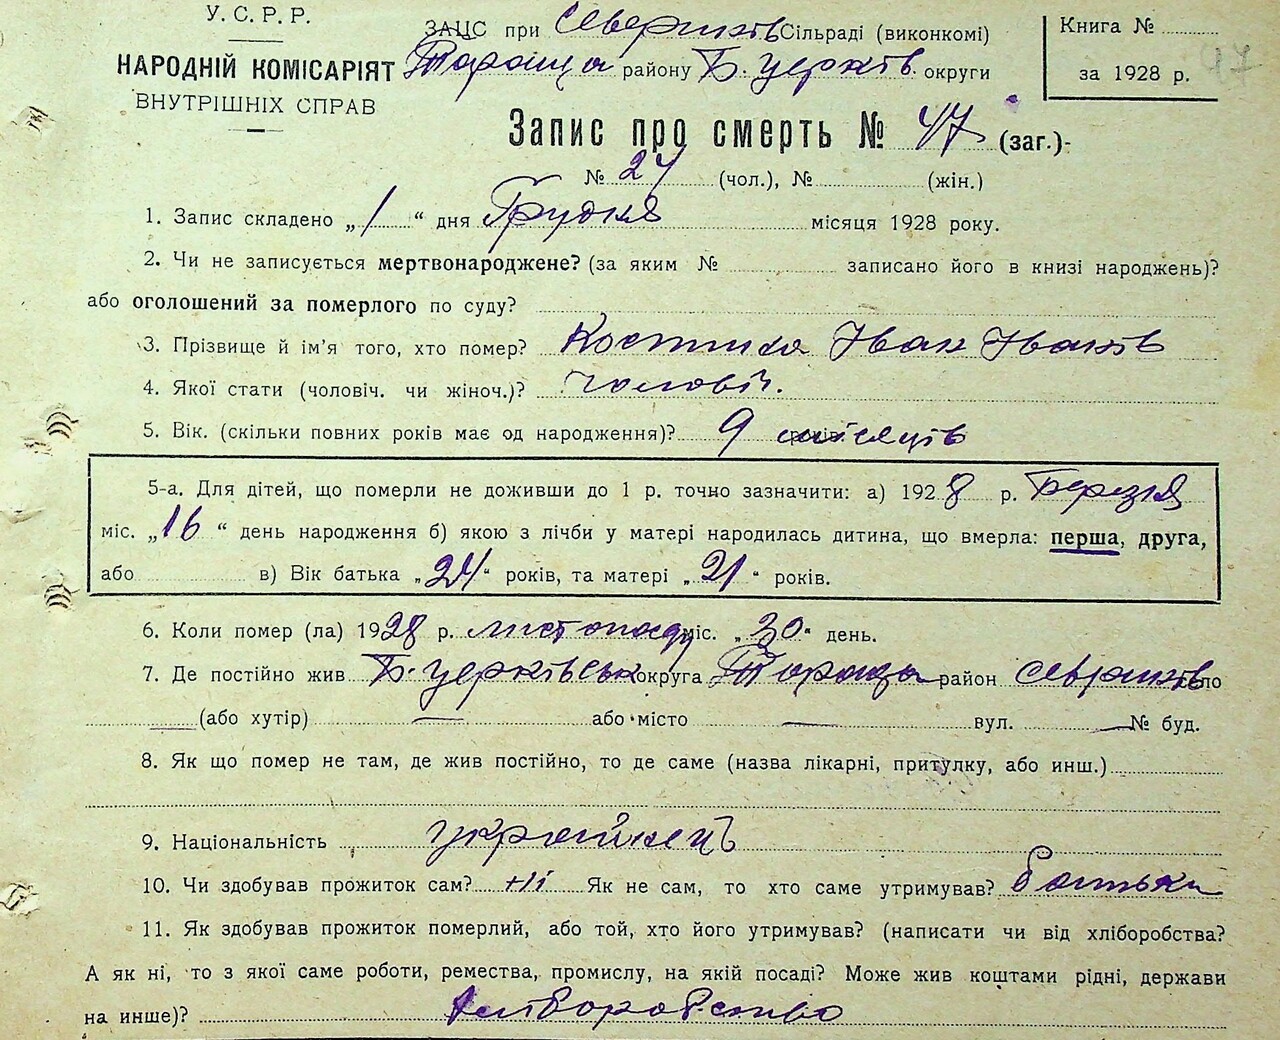 У.С.Р.Р.
НАРОДНІЙ КОМІСАРІЯТ
ВНУТРІШНІХ СПРАВ
ЗАЦС при Севериків Сільраді (виконкомі)
Тараща району Б. Церків. округи
Книга №
за 1928 р. 47
Запис про смерть № 47 (заг.)-
№ 24 (чол.), № (жін.)
1. Запис складено „1“ дня Грудня місяця 1928 року.
2. Чи не записується мертвонароджене? (за яким № записано його в книзі народжень)?
або оголошений за померлого по суду?
3. Прізвище й ім'я того, хто помер? Іван Іванів
4. Якої стати (чоловіч. чи жіноч.)? Чоловіч.
5. Вік. (скільки повних років має од народження)? 9 місяців
5-а. Для дітей, що померли не доживши до 1 р. точно зазначити: а) 1928 р. Березня
міс. „16“ день народження б) якою з лічби у матері народилась дитина, що вмерла: перша, друга,
або в) Вік батька „24“ років, та матері „21“ років.
6. Коли помер (ла) 1928 р. листопаду міс. „30“ день.
7. Де постійно жив Б. Церківськ округа Тараща район село
(або хутір) — або місто — вул. — № буд.
8. Як що помер не там, де жив постійно, то де саме (назва лікарні, притулку, або инш.)
9. Національність українець
10. Чи здобував прожиток сам? ні Як не сам, то хто саме утримував? батьки
11. Як здобував прожиток померлий, або той, хто його утримував? (написати чи від хліборобства?
А як ні, то з якої саме роботи, ремества, промислу, на якій посаді? Може жив коштами рідні, держави
на инше)? хліборобство